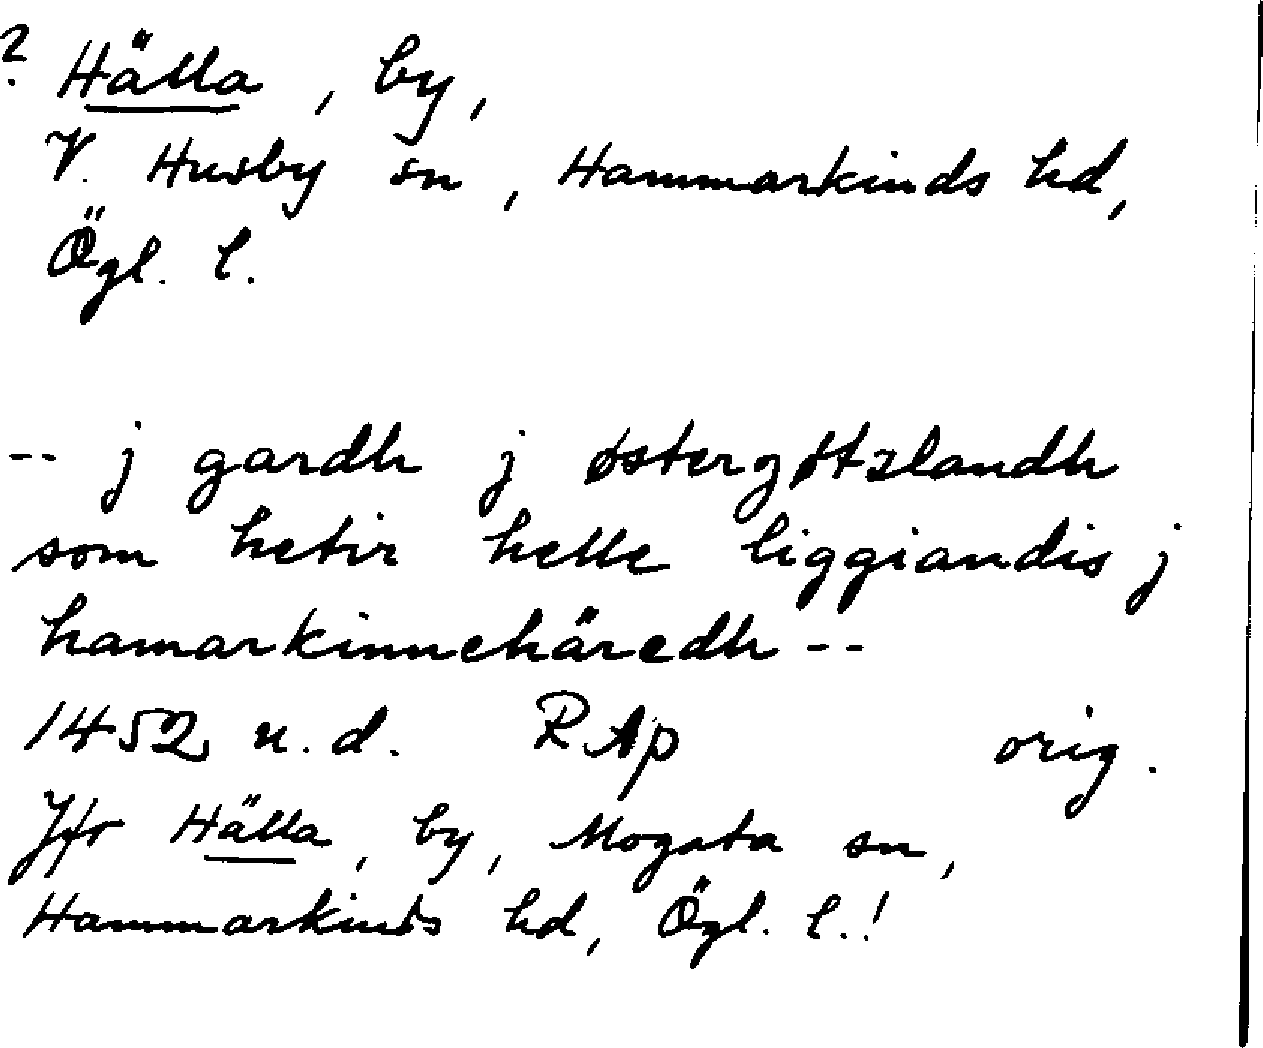 ? Hälla, by,
V. Husby sn, Hammarkinds hd,
Ögl. l.
-- j gardh j østergøtzlandh
som hetir helle liggiandis j
hamarkinnehäredh --
1452 u.d. RAp orig.
Jfr Hälla, by, Mogata sn,
Hammarkinds hd, Ögl. l.!